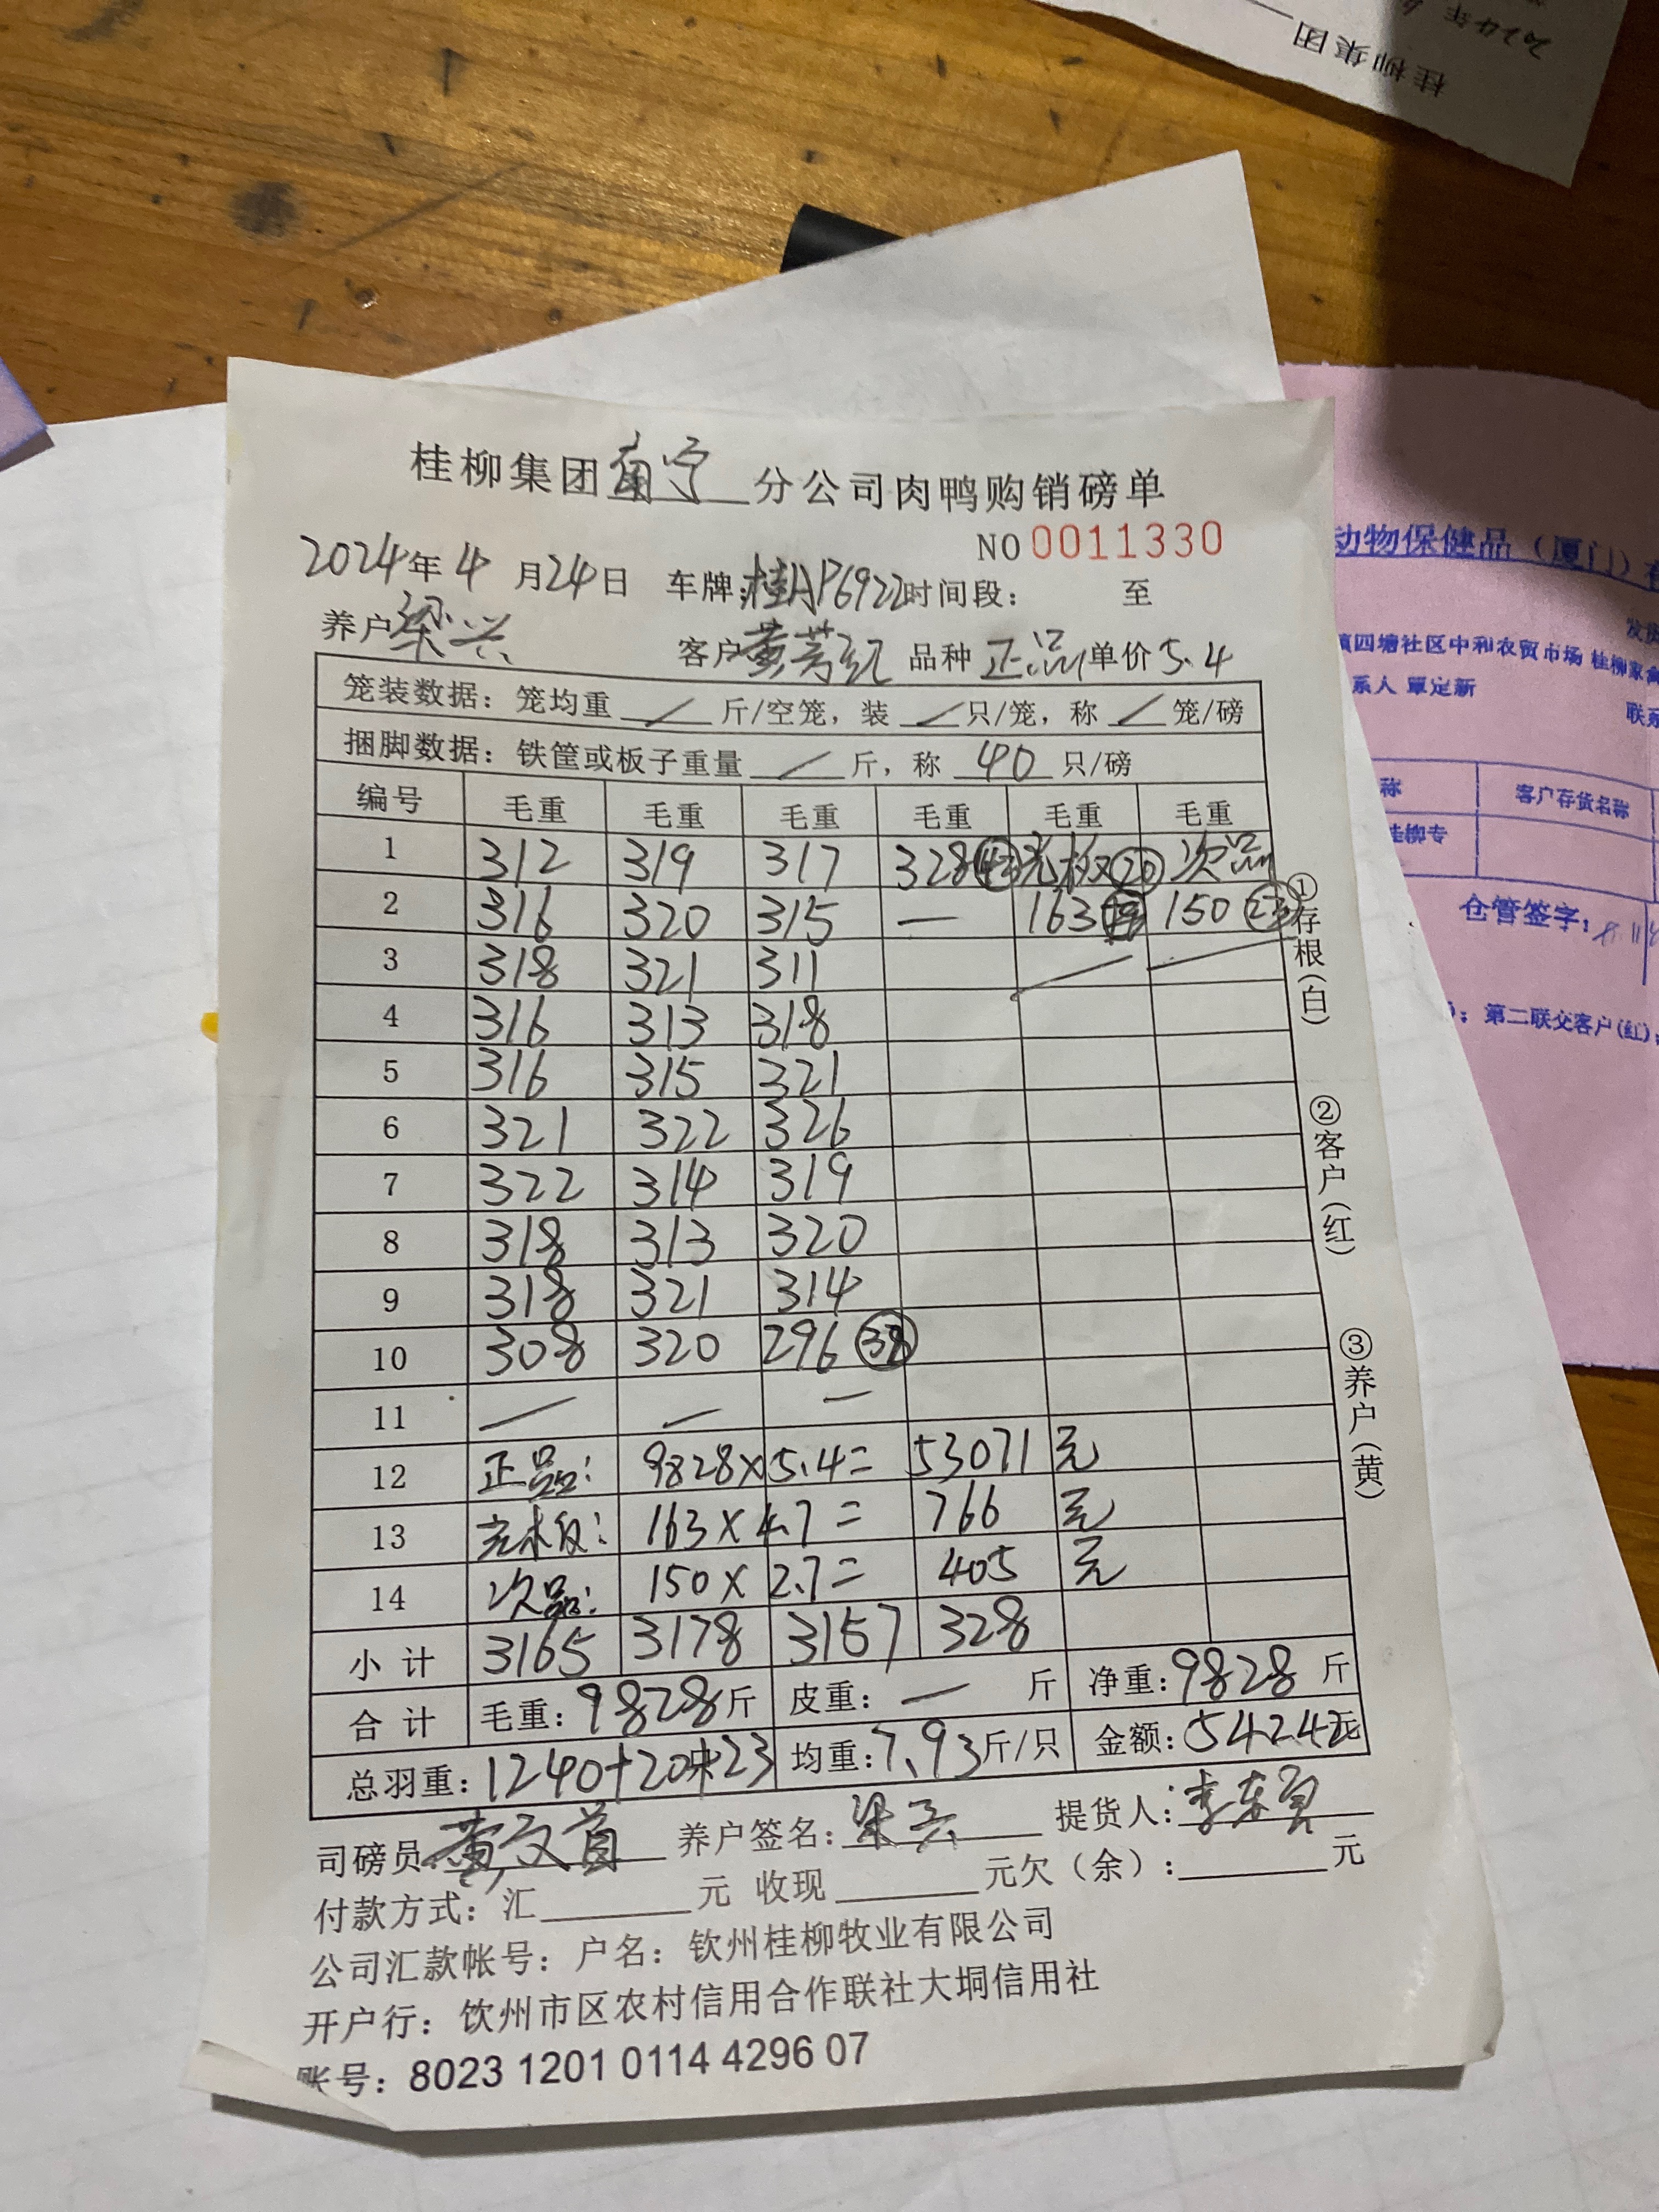 桂柳集团
2024年
桂柳集团南宁分公司肉鸭购销磅单
NO 0011330
2024年4月24日 车牌:桂AP6922时间段: 至
养户梁兴 客户黄芳红 品种 正品 单价5.4
笼装数据:笼均重 / 斤/空笼,装 / 只/笼,称 / 笼/磅
捆脚数据:铁筐或板子重量 / 斤,称 40 只/磅
编号 毛重 毛重 毛重 毛重 毛重 毛重
1 312 319 317 328 光板 20 次品
2 316 320 315 — 163 150 23
3 318 321 311
4 316 313 318
5 316 315 321
6 321 322 326
7 322 314 319
8 318 313 320
9 318 321 314
10 308 320 296 38
11 — — —
12 正品: 9828×5.4= 53071 元
13 光板: 163×4.7= 766 元
14 次品: 150×2.7= 405 元
小计 3165 3178 3157 328
合计 毛重:9828斤 皮重: — 斤 净重:9828斤
总羽重:1240+20+23 均重:7.93斤/只 金额:54242元
司磅员:黄文首 养户签名:梁兴 提货人:李东
付款方式:汇 元 收现 元欠(余): 元
公司汇款帐号:户名:钦州桂柳牧业有限公司
开户行:钦州市区农村信用合作联社大垌信用社
账号:8023 1201 0114 4296 07
①存根(白) ②客户(红) ③养户(黄)
动物保健品(厦门)有
发货
镇四塘社区中和农贸市场 桂柳家禽
系人 覃定新
联系
称 客户存货名称
桂柳专
仓管签字:
;第二联交客户(红);